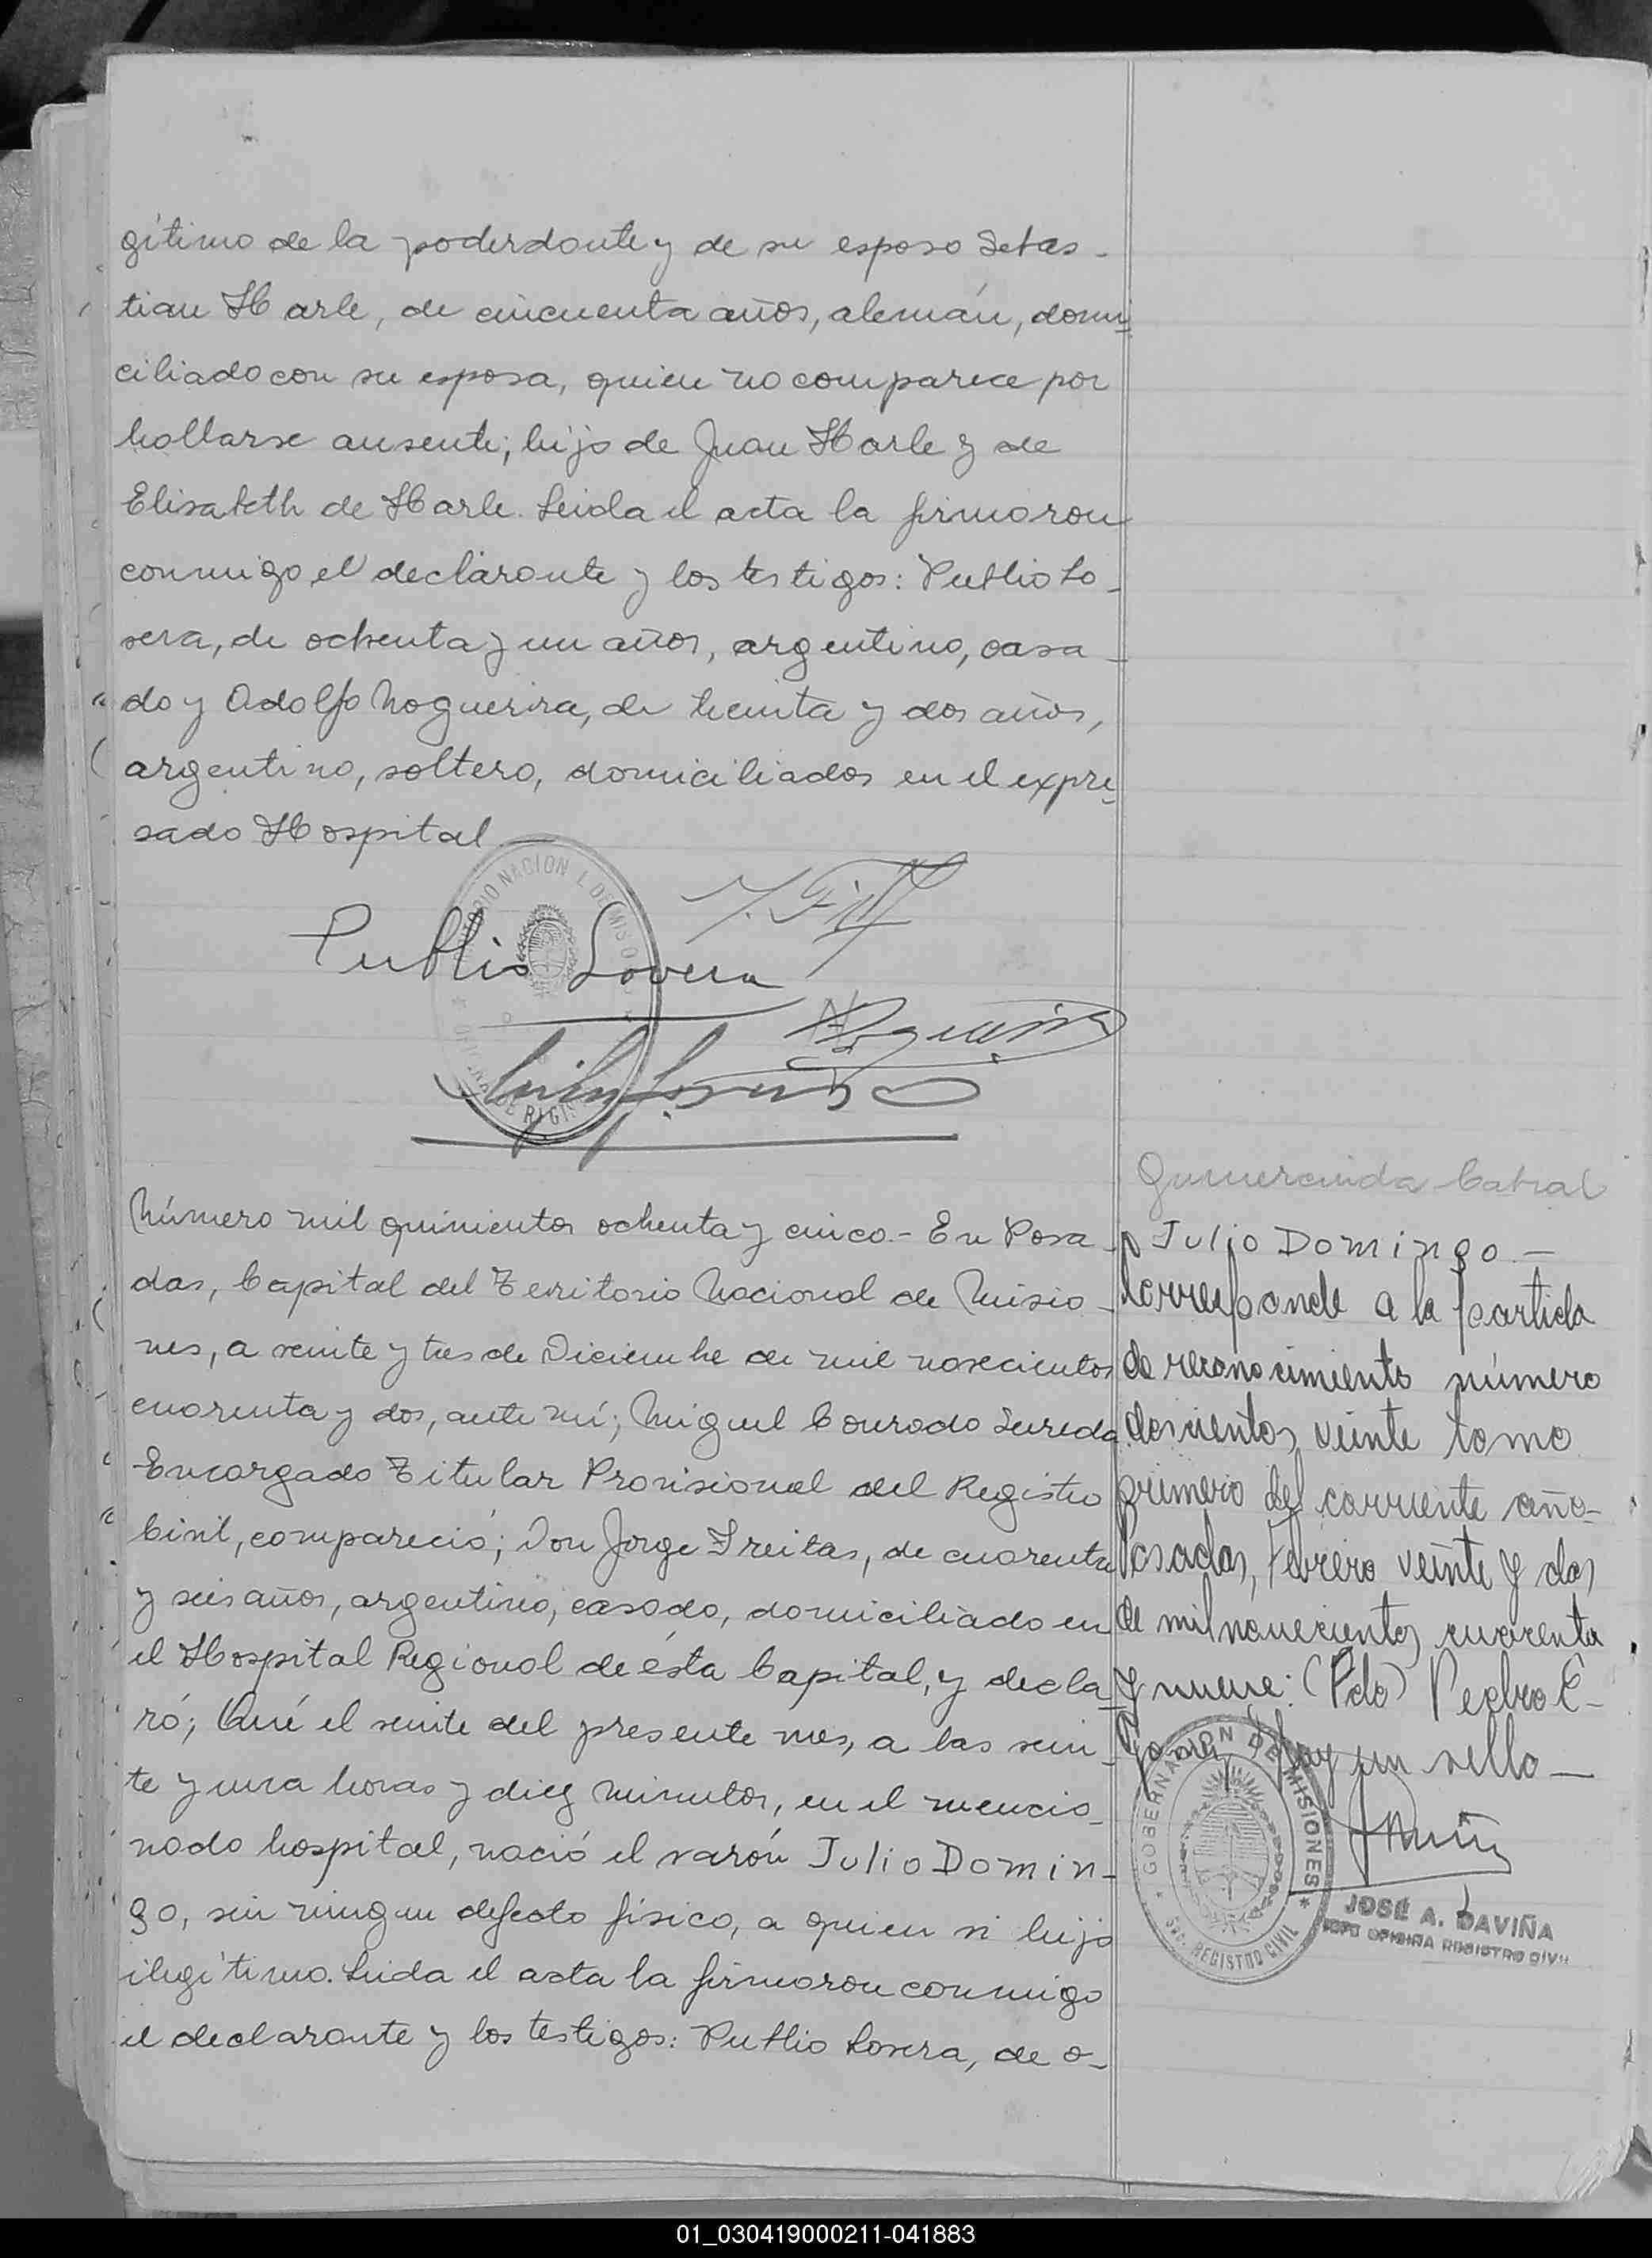 gítimo de la poderdante y de su esposo Sebas-
tian Harle, de cincuenta años, alemán, domi-
ciliado con su esposa, quien no comparece por
hallarse ausente; hijo de Juan Harle y de
Elisabeth de Harle. Leida el acta la firmaron
conmigo el declarante y los testigos: Publio Lo-
vera, de ochenta y un años, argentino, casa-
do y Adolfo Nogueira, de treinta y dos años,
argentino, soltero, domiciliados en el expre-
sado Hospital
Publio Lovera
Número mil quinientos ochenta y cinco.- En Posa-
das, Capital del Territorio Nacional de Misio-
nes, a veinte y tres de Diciembre de mil novecientos
cuarenta y dos, ante mí; Miguel Conrado Sureda
Encargado Titular Provisional del Registro
Civil, compareció; Don Jorge Freitas, de cuarenta
y seis años, argentino, casado, domiciliado en
el Hospital Regional de ésta Capital, y decla-
ró; Qué el veinte del presente mes, a las vein-
te y una horas y diez minutos, en el mencio-
nado hospital, nació el varón Julio Domin-
go, sin ningun defecto físico, a quien vi hijo
ilegítimo. Leida el acta la firmaron conmigo
el declarante y los testigos: Publio Lovera, de o-
Gumercinda Cabral
Julio Domingo-
Corresponde a la partida
de reconocimiento número
doscientos veinte tomo
primero del corriente año-
Posadas, Febrero veinte y dos
de mil novecientos cuarenta
y nueve: (Fdo) Pedro E-
Hay un sello-
GOBERNACION DE MISIONES
Sec. REGISTRO CIVIL
JOSÉ A. DAVIÑA
JEFE OFICINA REGISTRO CIVIL
01_030419000211-041883